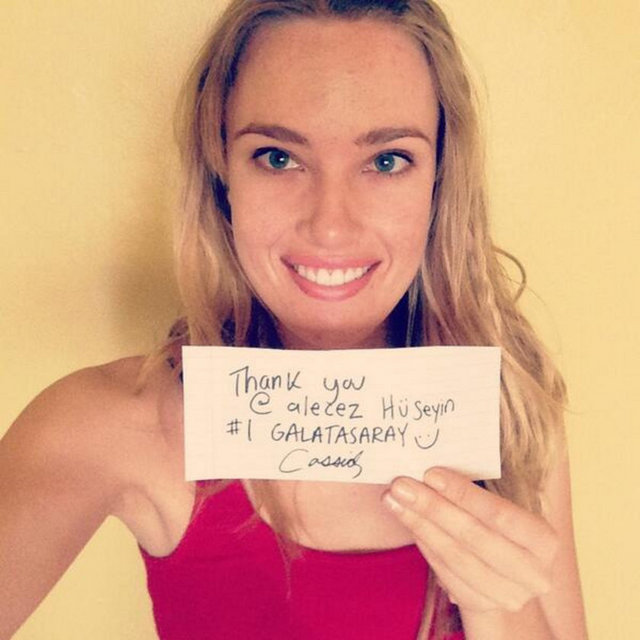 Thank you
@ alecez Hüseyin
#1 GALATASARAY
Cassidy